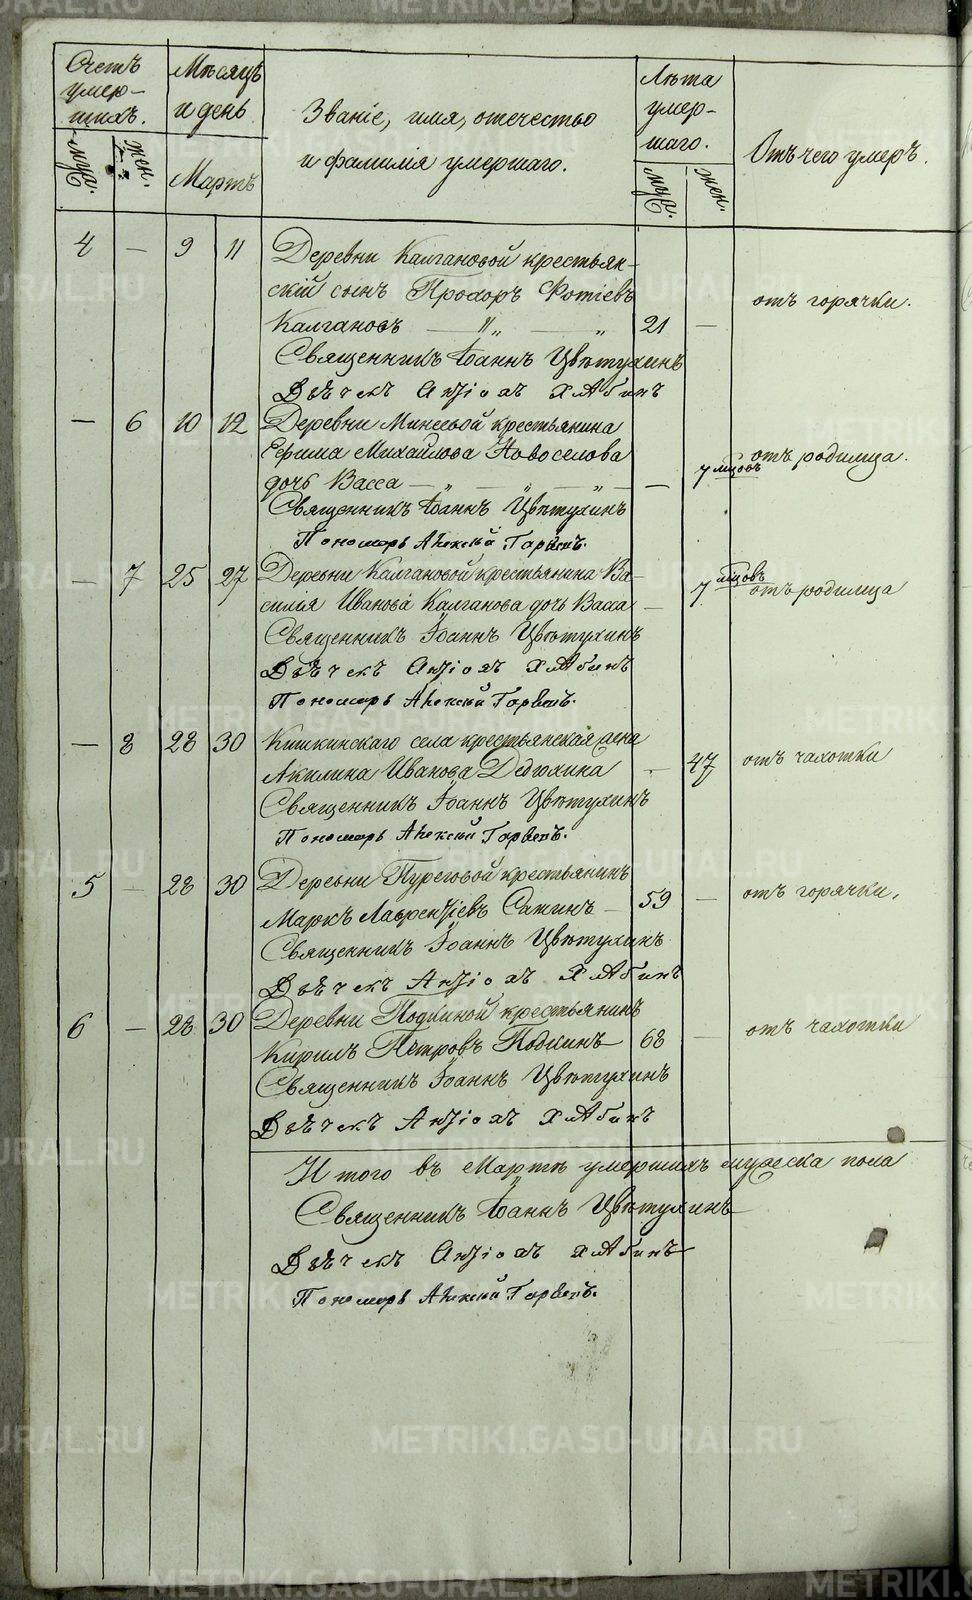 Счетъ
умер-
шихъ.
Мѣсяцъ
и день
Званіе, имя, отчество
и фамилія умершаго.
Лѣта
умер-
шаго.
Отъ чего умеръ.
муж.
жен.
Мартъ
муж.
жен.
4 — 9 11 Деревни Калгановой крестьян-
скій сынъ Прохоръ Фотіевъ
Калгановъ — „ — „ 21 — отъ горячки.
Священникъ Іоаннъ Цвѣтухинъ
Дьячекъ Антіохъ Хлябинъ
— 6 10 12 Деревни Минеевой крестьянина
Ефима Михайлова Новоселова
дочь Васса — „ — „ — „ — — 7 мѣсовъ отъ родимца.
Священникъ Іоаннъ Цвѣтухинъ
Пономарь Алексѣй
— 7 25 27 Деревни Калгановой крестьянина Ва-
силія Иванова Калганова дочь Васса — 7 мѣсовъ отъ родимца
Священникъ Іоаннъ Цвѣтухинъ
Дьячекъ Антіохъ Хлябинъ
Пономарь Алексѣй
— 8 28 30 Кишкинскаго села крестьянская жена
Акилина Иванова Дедюхина — 47 отъ чахотки
Священникъ Іоаннъ Цвѣтухинъ
Пономарь Алексѣй
5 — 28 30 Деревни крестьянинъ
Маркъ Лаврентіевъ Сажинъ — 59 — отъ горячки.
Священникъ Іоаннъ Цвѣтухинъ
Дьячекъ Антіохъ Хлябинъ
6 — 28 30 Деревни Подкиной крестьянинъ
Кирилъ Петровъ Подкинъ 68 — отъ чахотки
Священникъ Іоаннъ Цвѣтухинъ
Дьячекъ Антіохъ Хлябинъ
Итого въ Мартѣ умершихъ мужеска пола
Священникъ Іоаннъ Цвѣтухинъ
Дьячекъ Антіохъ Хлябинъ
Пономарь Алексѣй
METRIKI.GASO-URAL.RU